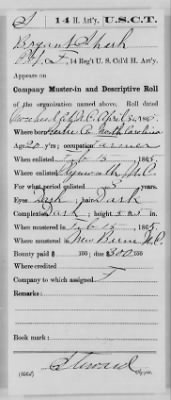 S | 14 H. Art'y. | U.S.C.T.
Bryant Shark
Pvt, Co. F, 14 Reg't U. S. Col'd H. Art'y.
Appears on
Company Muster-in and Descriptive Roll
of the organization named above. Roll dated
Morehead City N.C. April 30, 1865.
Where born N. Carolina
Age 20 y'rs; occupation Farmer
When enlisted Feb 13, 1865.
Where enlisted Plymouth N.C.
For what period enlisted 3 years.
Eyes Dark; hair Dark
Complexion Dark; height 5 ft. 5 in.
When mustered in Feb 13, 1865.
Where mustered in New Berne N.C.
Bounty paid $ 100; due $ 300 100
Where credited
Company to which assigned F
Remarks:
Book mark:
Steward
Copyist.